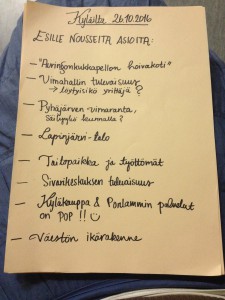 Kyläilta 26.10.2016
ESILLE NOUSSEITA ASIOITA:
- "Auringonkukkapellon hoivakoti"
- Vimahallin tulevaisuus
→ löytyisikö yrittäjä?
- Pyhäjärven-uimaranta,
säilyykö kunnalla?
- Lapinjärvi-talo
- Taitopaikka ja työttömät
- Sivarikeskuksen tulevaisuus
- Kyläkauppa & Porlammin palvelut
on POP !! ☺
- Väestön ikärakenne